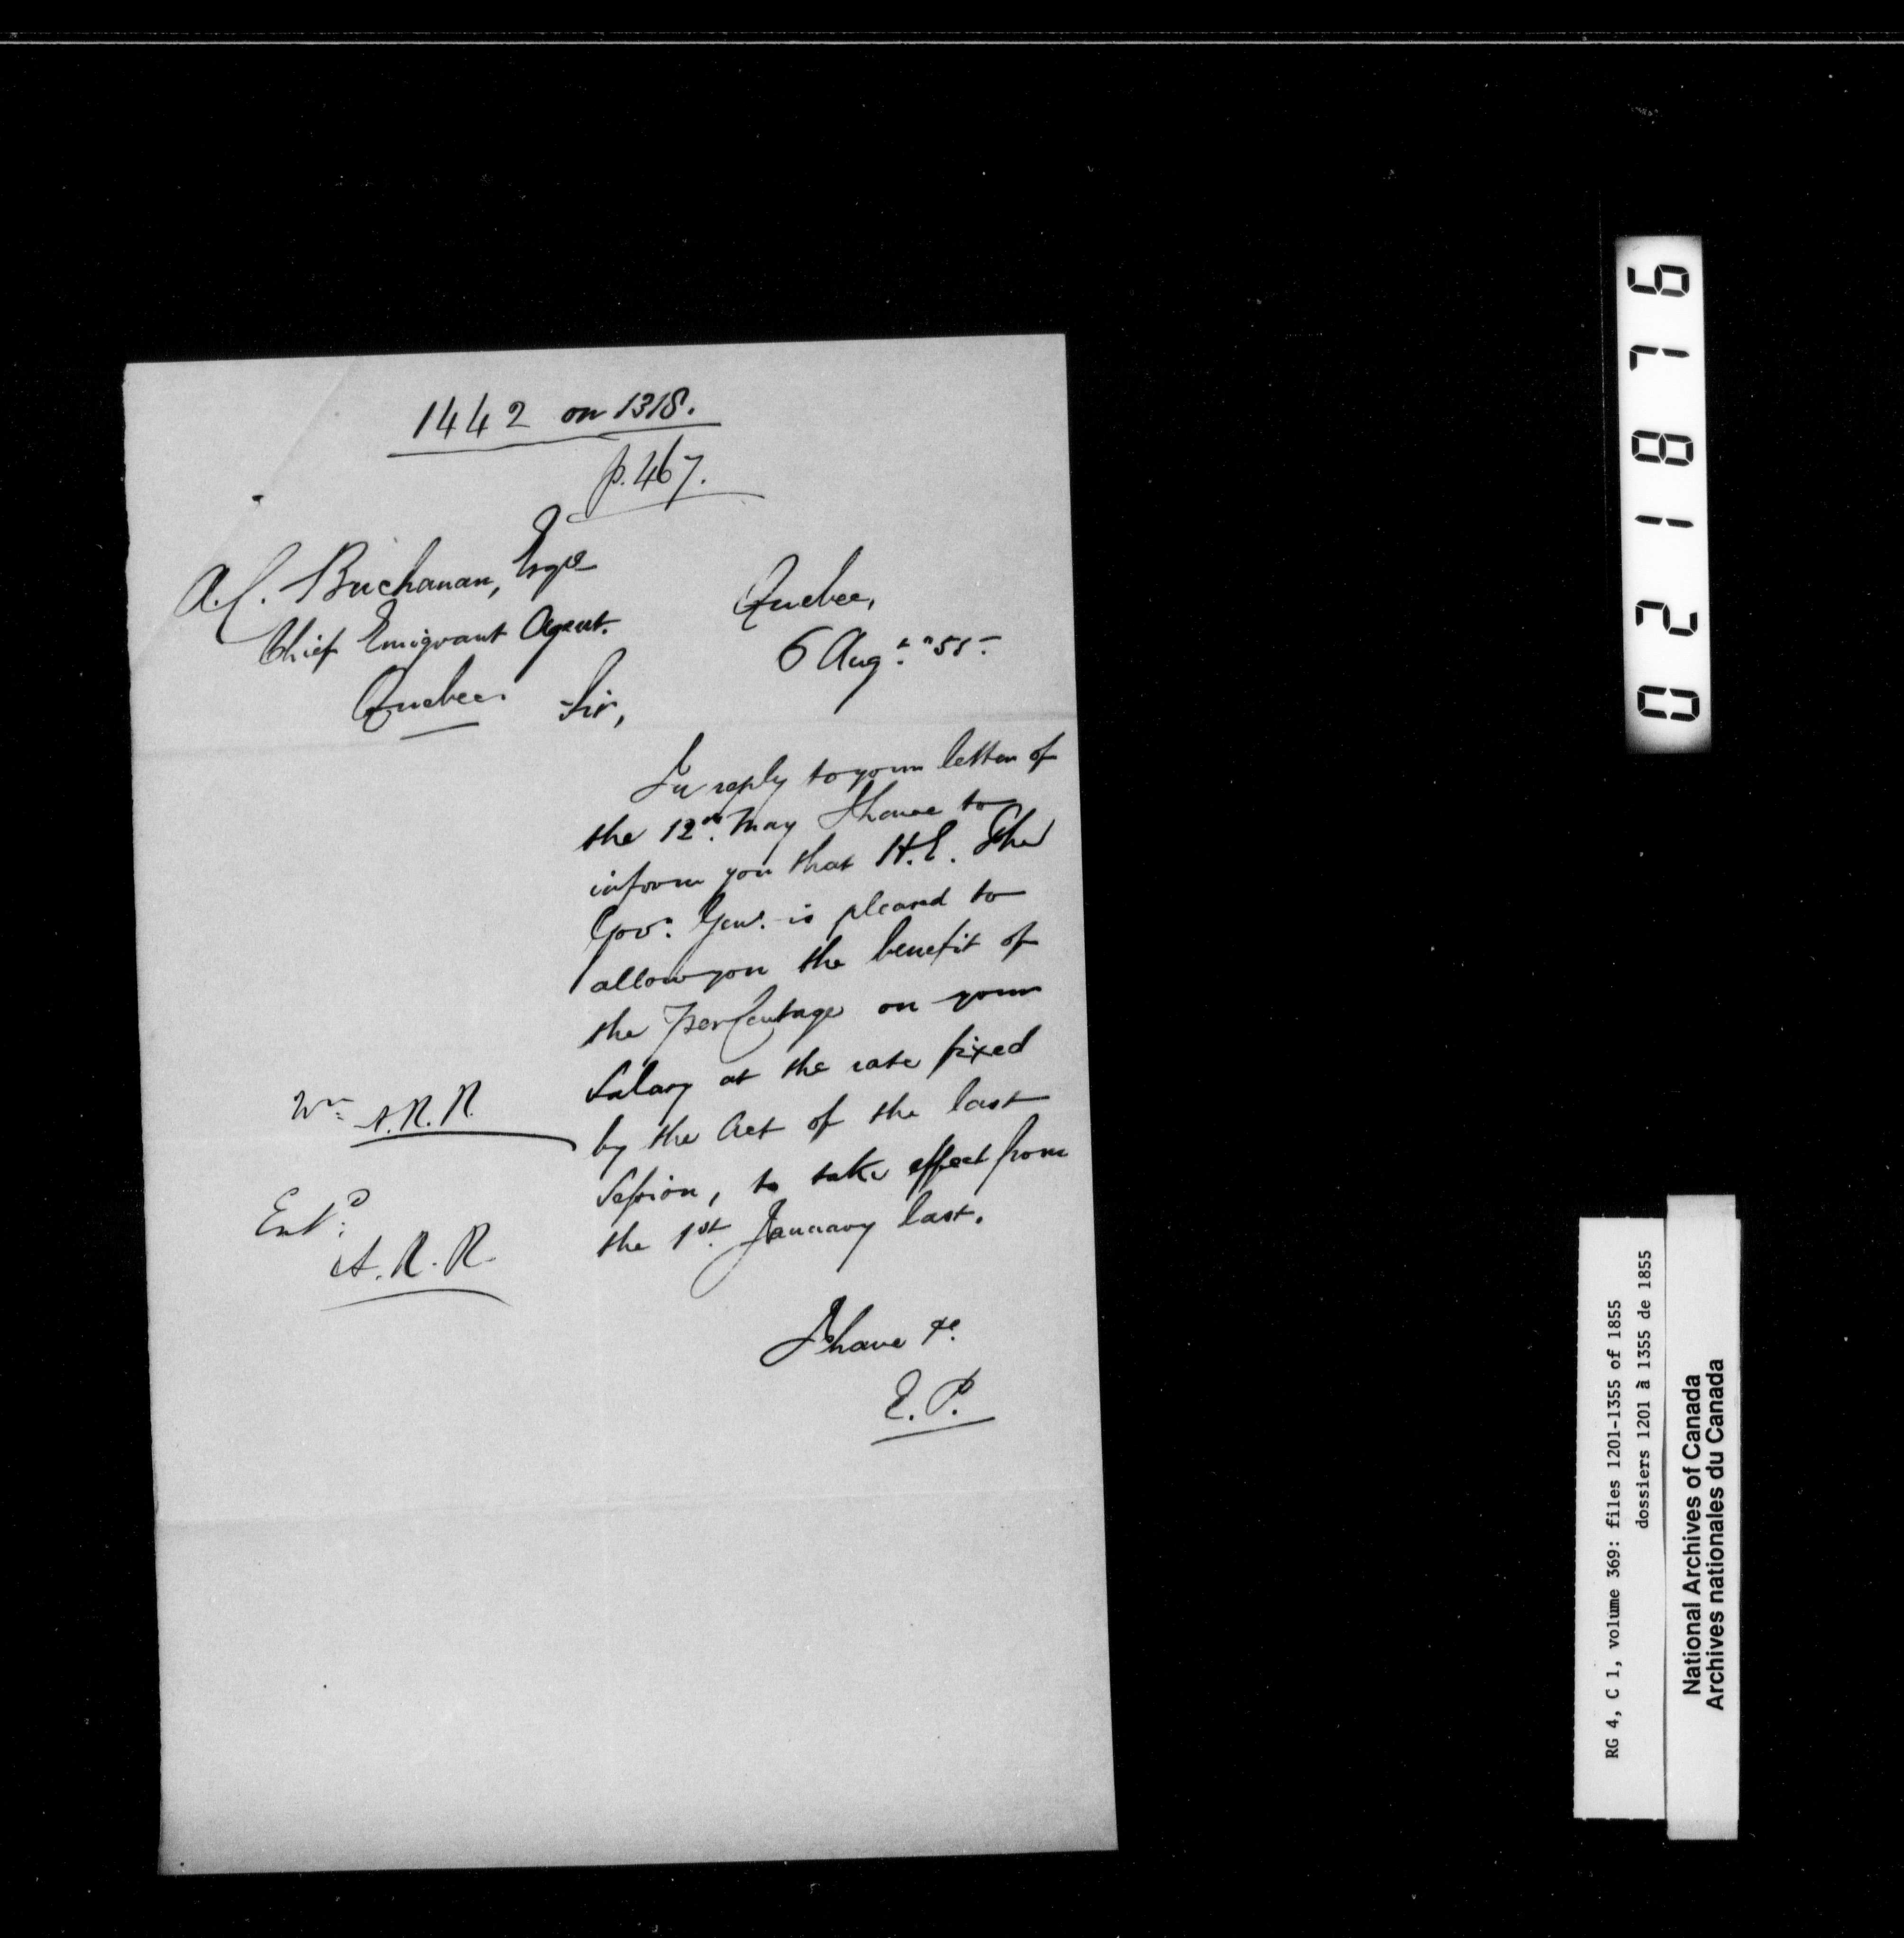 1442 on 1318.
p. 467.
A. C. Buchanan, Esqre
Chief Emigrant Agent.
Quebec.
Quebec,
6 Augt. "55-
Sir,
In reply to your letter of
the 12th. May I have to
inform you that H.E. The
Govr. Genl. is pleased to
allow you the benefit of
the Per Centage on your
Salary at the rate fixed
by the Act of the last
Session, to take effect from
the 1st. January last.
I have &c.
E. P.
Wn. A. R. R.
Entd.
A. R. R.
021876
RG 4, C 1, volume 369: files 1201-1355 of 1855
dossiers 1201 à 1355 de 1855
National Archives of Canada
Archives nationales du Canada